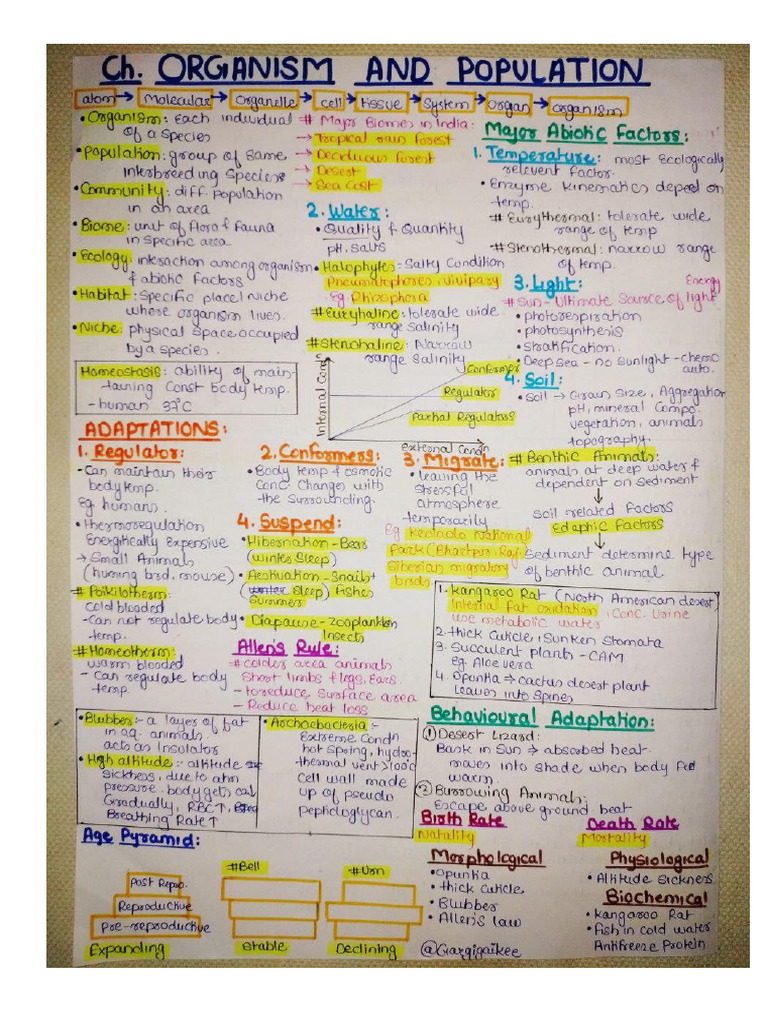 Ch. ORGANISM AND POPULATION
atom → Molecular → Organelle → cell → tissue → System → Organ → organism
• Organism: Each individual
of a Species
• Population: group of Same
interbreeding Species
• Community: diff. population
in an area
• Biome: unit of flora & fauna
in Specific area.
• Ecology: interaction among organism
& abiotic factors
• Habitat: Specific place| niche
where organism lives.
• Niche: physical Space occupied
by a species.
Homeostasis: ability of main-
-taining Const body temp.
- human 37°C
# Major Biomes in India:
→ Tropical rain forest
→ Deciduous forest
→ Desert
→ Sea Cost
2. Water:
• Quality & Quantity
pH, Salts
• Halophytes: Salty Condition
Pneumatophores, Vivipary
Eg. Rhizophora
# Euryhaline: tolerate wide
range salinity
# Stenohaline: Narrow
range Salinity
Major Abiotic Factors:
1. Temperature: most ecologically
relevent factor.
• Enzyme kinematics depend on
temp.
# Eurythermal: tolerate wide
range of temp
# Stenothermal: narrow range
of temp.
3. Light:
Energy
# Sun - Ultimate Source of light
• photorespiration
• photosynthesis
• Stratification.
• Deep sea - no Sunlight - chemo
auto.
4. Soil:
• Soil → Grain Size, Aggregation
pH, mineral Compo.
vegetation, animals
topography.
# Benthic Animals:
animals at deep water &
dependent on Sediment
↓
Soil related factors
Edaphic Factors
↓
Sediment determine type
of benthic animal
Internal Condn
Conformer
Regulator
Partial Regulators
External Condn
ADAPTATIONS:
1. Regulator:
- Can maintain their
body temp.
Eg humans.
• thermoregulation
Energitically Expensive
→ Small Animals
(huming bird, mouse)
# Poikilotherm:
cold blooded
- Can not regulate body
temp.
# Homeotherm:
warm blooded
- Can regulate body
temp.
2. Conformers:
• Body temp & osmotic
Conc. Changes with
the Surrounding.
3. Migrate:
• leaving the
stressful
atmosphere
temporarily
Eg Keolado National
Park (Bhartpur Raj)
Siberian migratory
birds
4. Suspend:
• Hibernation - Bear
(winter Sleep)
• Aestivation - Snails &
(winter Sleep) Fishes
Summer
• Diapause - Zooplankton
Insects
Allen's Rule:
# colder area animals
Short limbs & legs, Ears.
- to reduce Surface area
- Reduce heat loss
1. Kangaroo Rat (North American desert)
Internal fat oxidation, Conc. Urine
use metabolic water
2. thick Cuticle, Sunken Stomata
3. Succulent plants - CAM
Eg. Aloe vera
4. Opuntia → cactus desert plant
Leaves into Spines
• Blubber: - a layer of fat
in aq. animals.
acts as Insolator
• High altitude: - altitude
sickness, due to atm
pressure. body gets
Gradually, RBC↑,
Breathing Rate↑
• Archaebacteria: -
Extreme Condn
hot Spring, hydro-
-thermal vent >100°C
cell wall made
up of pseudo
peptidoglycan.
Behavioural Adaptation:
① Desert Lizard:
Bask in Sun → absorbed heat.
moves into shade when body
warm.
② Burrowing Animals:
Escape above ground heat
Birth Rate
Natality
Death Rate
Mortality
Morphological
• Opuntia
• thick cuticle
• Blubber
• Allen's law
Physiological
• Altitude Sickness.
Biochemical
• Kangaroo Rat
• fish in cold water
Antifreeze Protein
Age Pyramid:
Post Repro.
Reproductive
Pre-reproductive
Expanding
# Bell
Stable
# Urn
Declining
@Giargigaikee